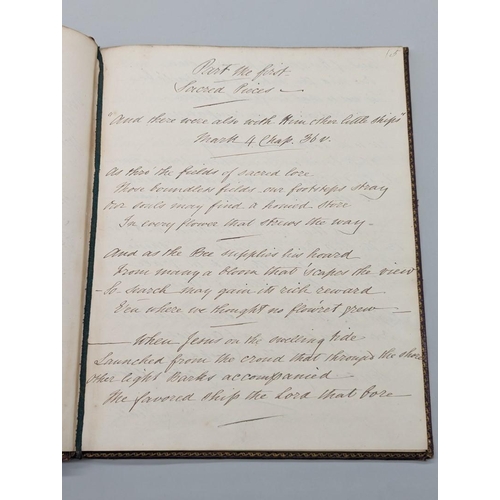 Part the first.
Sacred Pieces —
"And there were also with Him other little ships"
Mark 4. Chap. 36 v.
As thro' the fields of sacred lore
Those boundless fields our footsteps stray
Our souls may find a honied store
In every flower that strews the way —
And as the Bee supplies his hoard
From many a bloom that 'scapes the view
So search may gain its rich reward
E'en where we thought no flow'ret grew —
— When Jesus on the swelling tide
Launched from the crowd that through the shore
Other light Barks accompanied
The favored ship the Lord that bore —